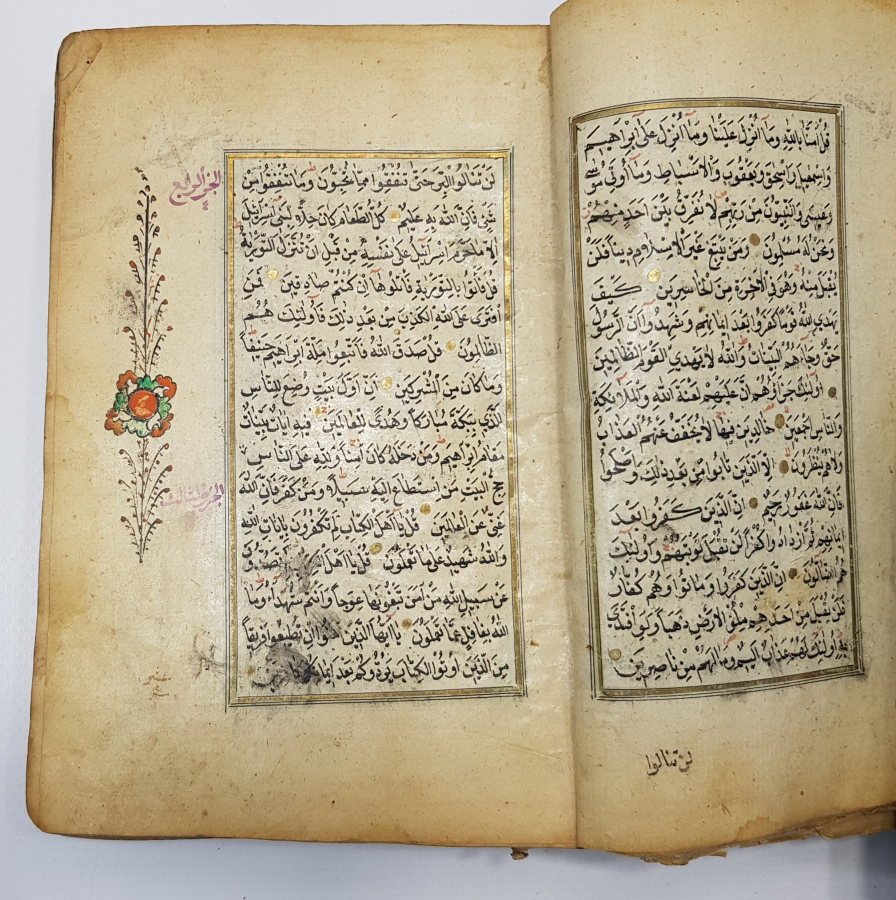 قل امنا بالله وما انزل علينا وما انزل على ابراهيم
واسمعيل واسحق ويعقوب والاسباط وما اوتي موسى
وعيسى والنبيون من ربهم لا نفرق بين احد منهم
ونحن له مسلمون ومن يبتغ غير الاسلام دينا فلن
يقبل منه وهو في الاخرة من الخاسرين كيف
يهدي الله قوما كفروا بعد ايمانهم وشهدوا ان الرسول
حق وجاءهم البينات والله لا يهدي القوم الظالمين
اولئك جزاؤهم ان عليهم لعنة الله والملائكة
والناس اجمعين خالدين فيها لا يخفف عنهم العذاب
ولا هم ينظرون الا الذين تابوا من بعد ذلك واصلحوا
فان الله غفور رحيم ان الذين كفروا بعد
ايمانهم ثم ازدادوا كفرا لن تقبل توبتهم واولئك
هم الضالون ان الذين كفروا وماتوا وهم كفار
فلن يقبل من احدهم ملؤ الارض ذهبا ولو افتدى
به اولئك لهم عذاب اليم وما لهم من ناصرين
لن تنالوا
الجزء الرابع
لن تنالوا البر حتى تنفقوا مما تحبون وما تنفقوا من
شئ فان الله به عليم كل الطعام كان حلا لبني اسرائيل
الا ما حرم اسرائيل على نفسه من قبل ان تنزل التورية
قل فاتوا بالتورية فاتلوها ان كنتم صادقين فمن
افترى على الله الكذب من بعد ذلك فاولئك هم
الظالمون قل صدق الله فاتبعوا ملة ابراهيم حنيفا
وما كان من المشركين ان اول بيت وضع للناس
للذي ببكة مباركا وهدى للعالمين فيه ايات بينات
مقام ابراهيم ومن دخله كان امنا ولله على الناس
حج البيت من استطاع اليه سبيلا ومن كفر فان الله
غني عن العالمين قل يا اهل الكتاب لم تكفرون بايات الله
والله شهيد على ما تعملون قل يا اهل تصدون
عن سبيل الله من امن تبغونها عوجا وانتم شهداء وما
الله بغافل عما تعملون يا ايها الذين امنوا ان تطيعوا فريقا
من الذين اوتوا الكتاب يردوكم بعد ايمانكم كافرين